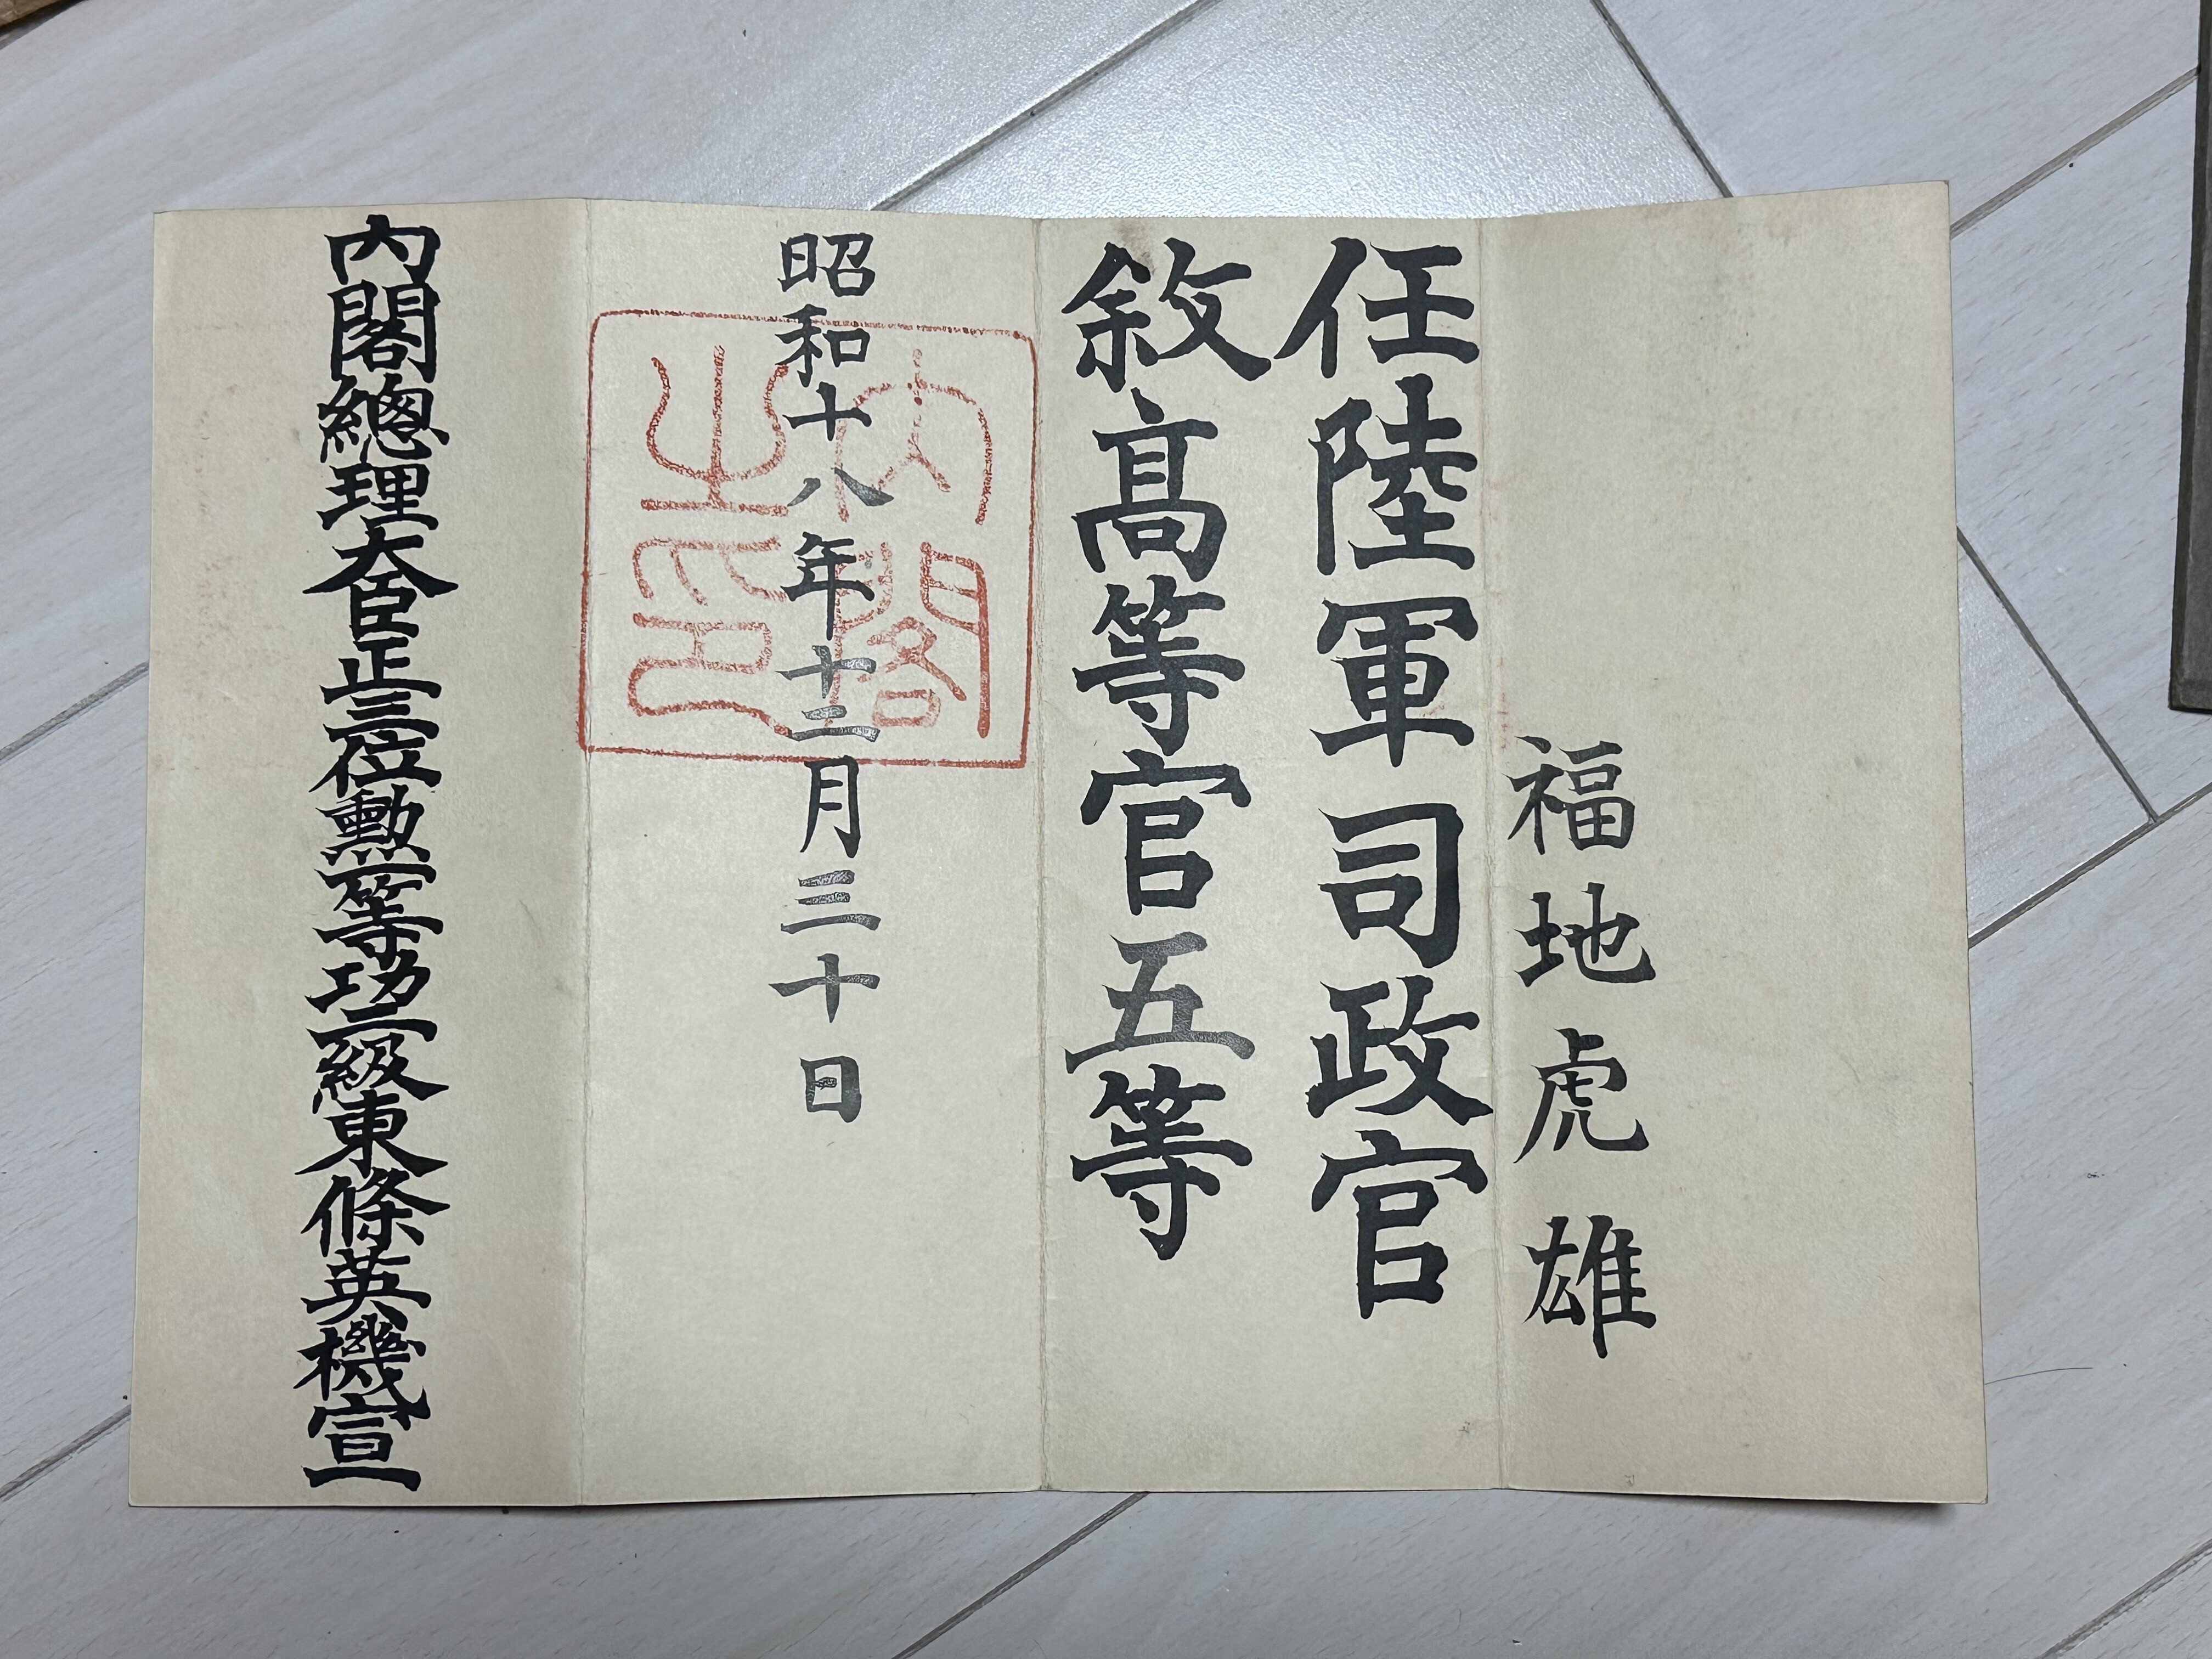 福地虎雄
任陸軍司政官
敘髙等官五等
昭和十八年十二月三十日
内閣之印
内閣總理大臣正三位勳一等功二級東條英機宣